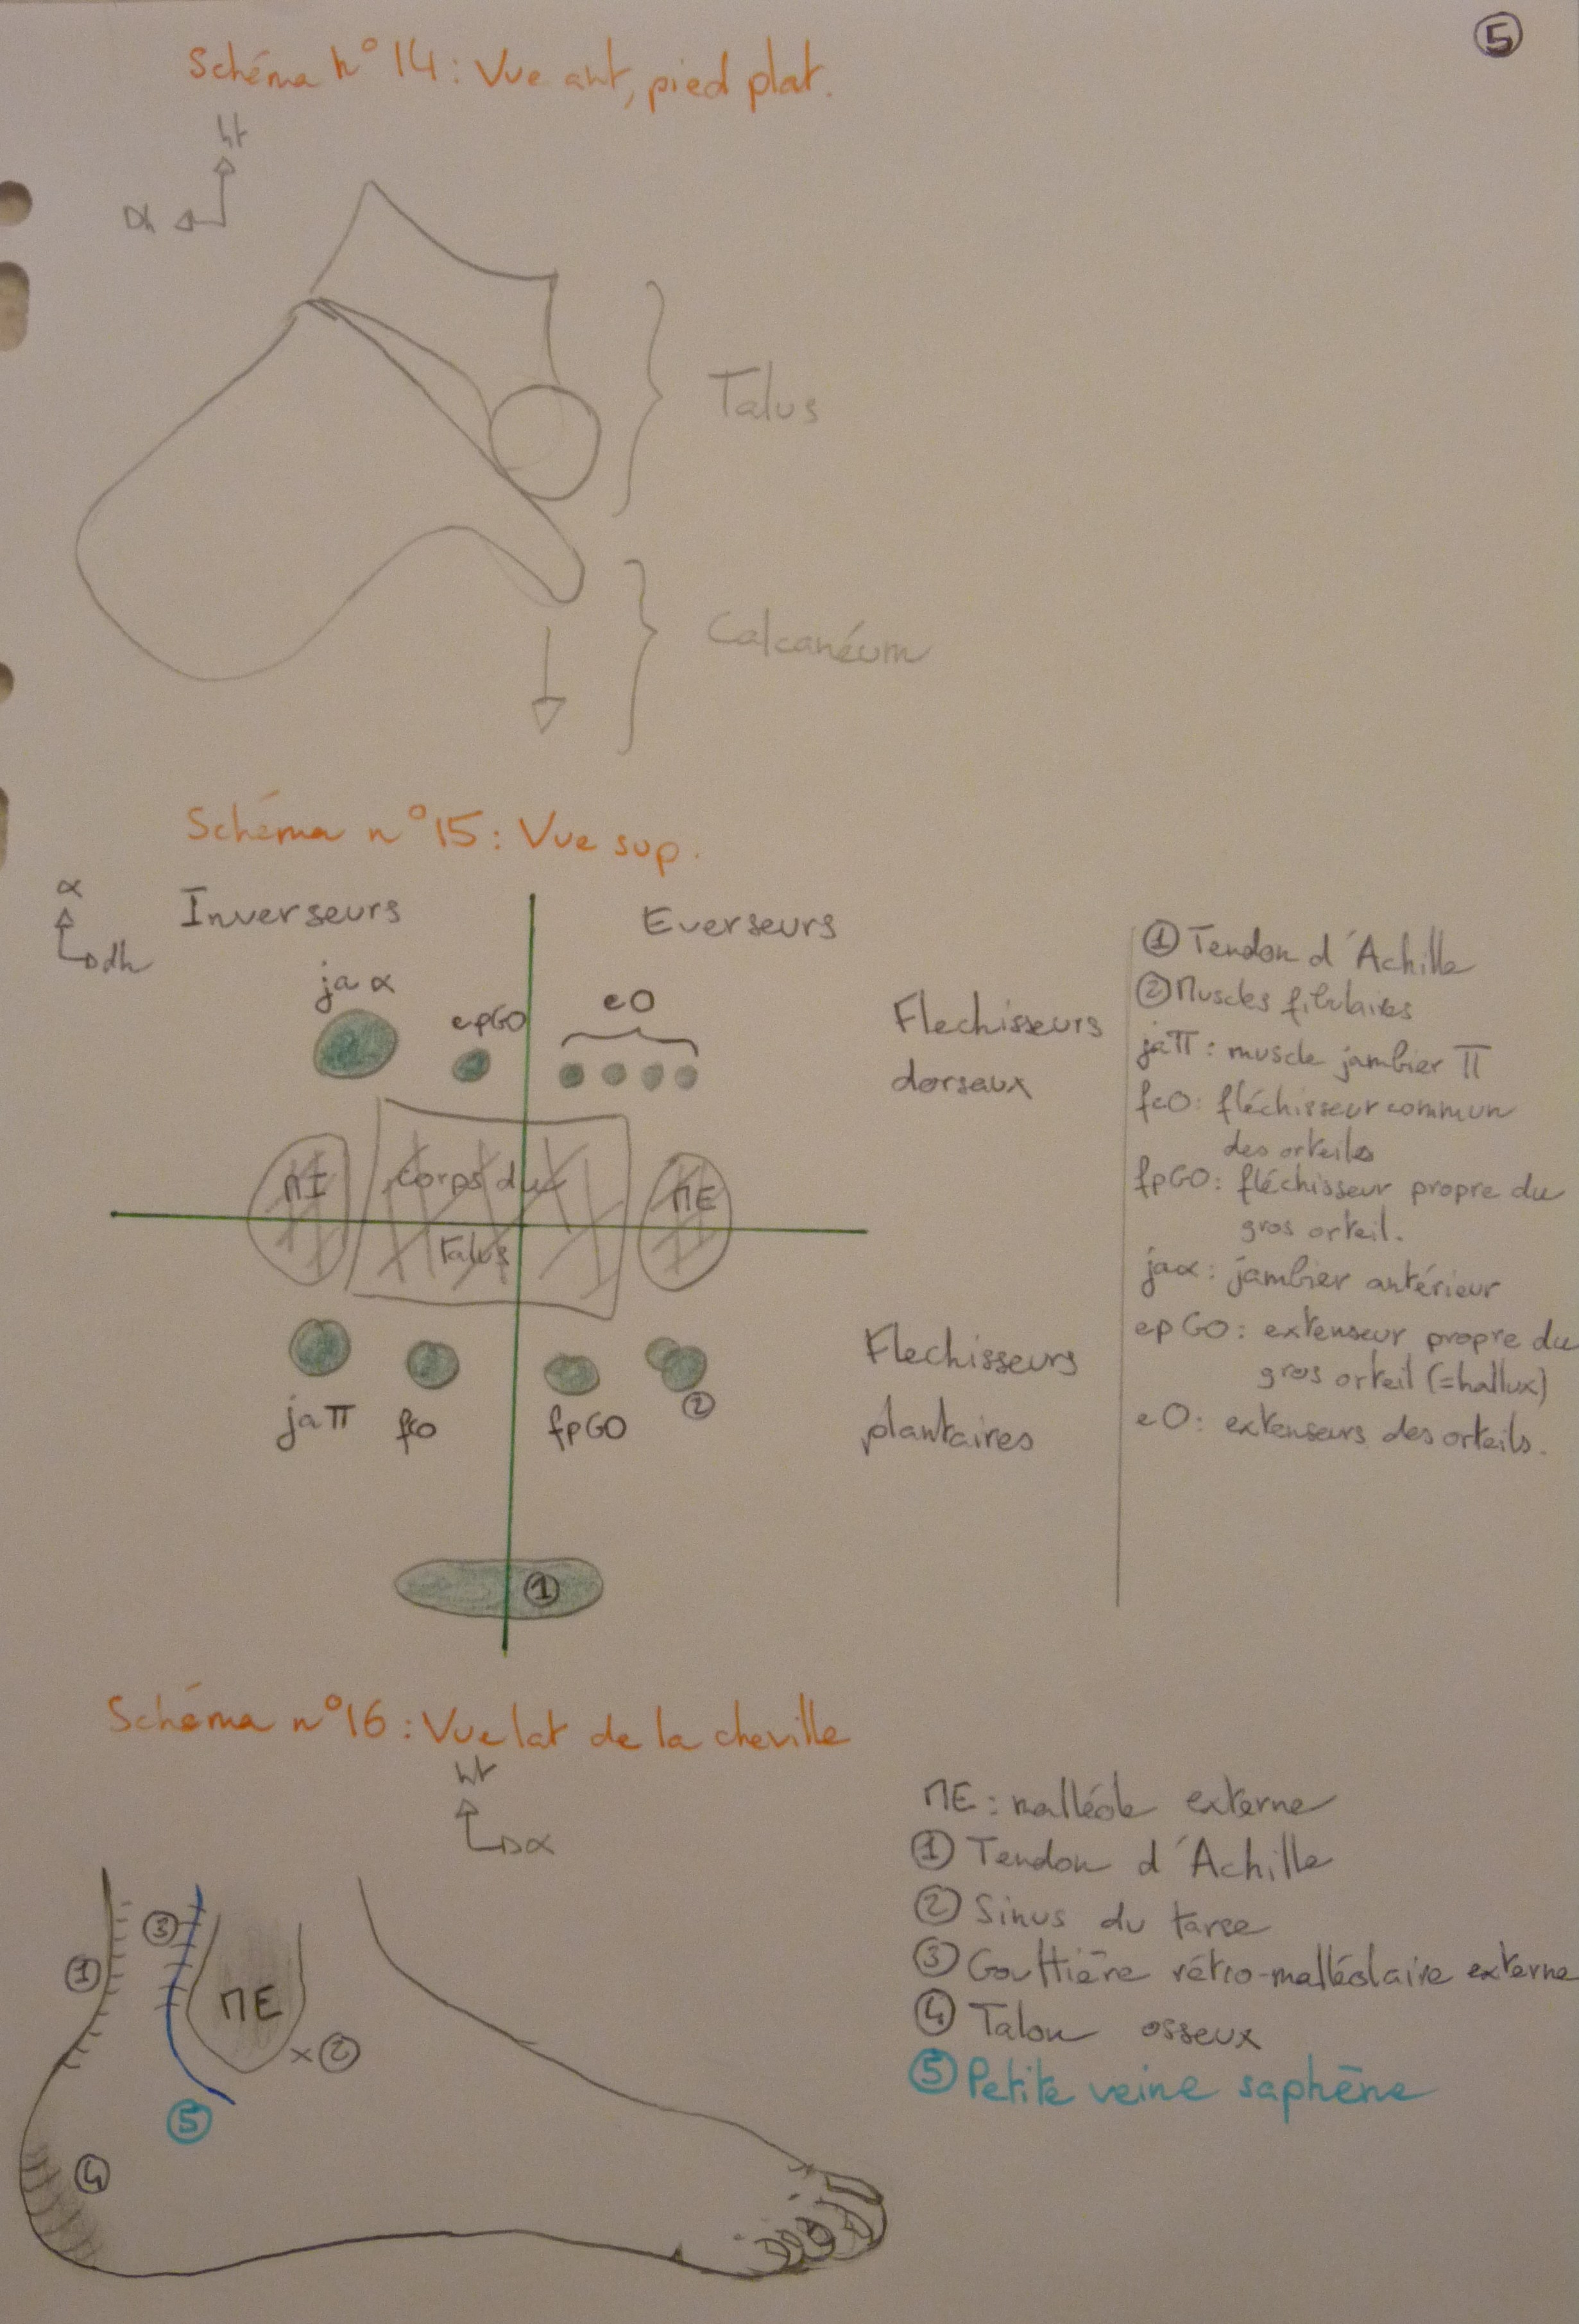 5
Schéma n° 14 : Vue ant, pied plat.
ht
Dh
Talus
Calcanéum
Schéma n° 15 : Vue sup.
α
dh
Inverseurs
Everseurs
ja α
epGO
eO
Flechisseurs
dorseaux
MI
corps du
talus
ME
ja π
fcO
fpGO
②
Flechisseurs
plantaires
①
① Tendon d'Achille
② Muscles fibulaires
jaπ : muscle jambier π
fcO : fléchisseur commun
des orteils
fpGO : fléchisseur propre du
gros orteil.
jaα : jambier antérieur
epGO : extenseur propre du
gros orteil (=hallux)
eO : extenseurs des orteils.
Schéma n° 16 : Vue lat de la cheville
ht
α
③
①
ME
× ②
⑤
④
ME : malléole externe
① Tendon d'Achille
② Sinus du tarse
③ Gouttière rétro-malléolaire externe
④ Talon osseux
⑤ Petite veine saphène